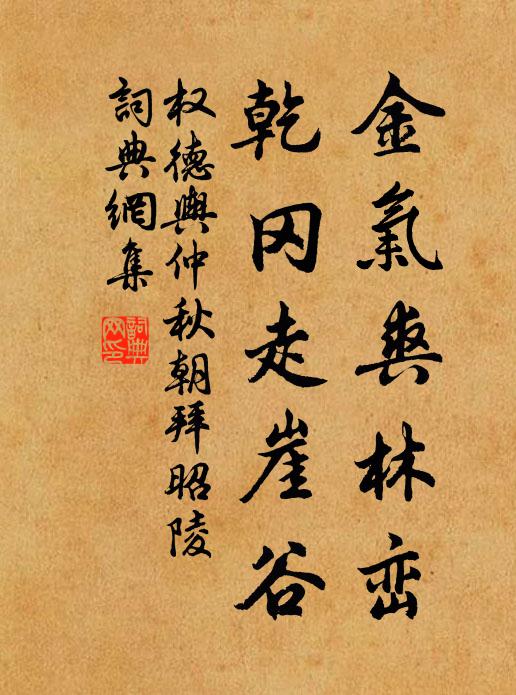 金氣爽林峦
乾冈走崖谷
权德輿仲秋朝拜昭陵
詞典網集
詞典網印